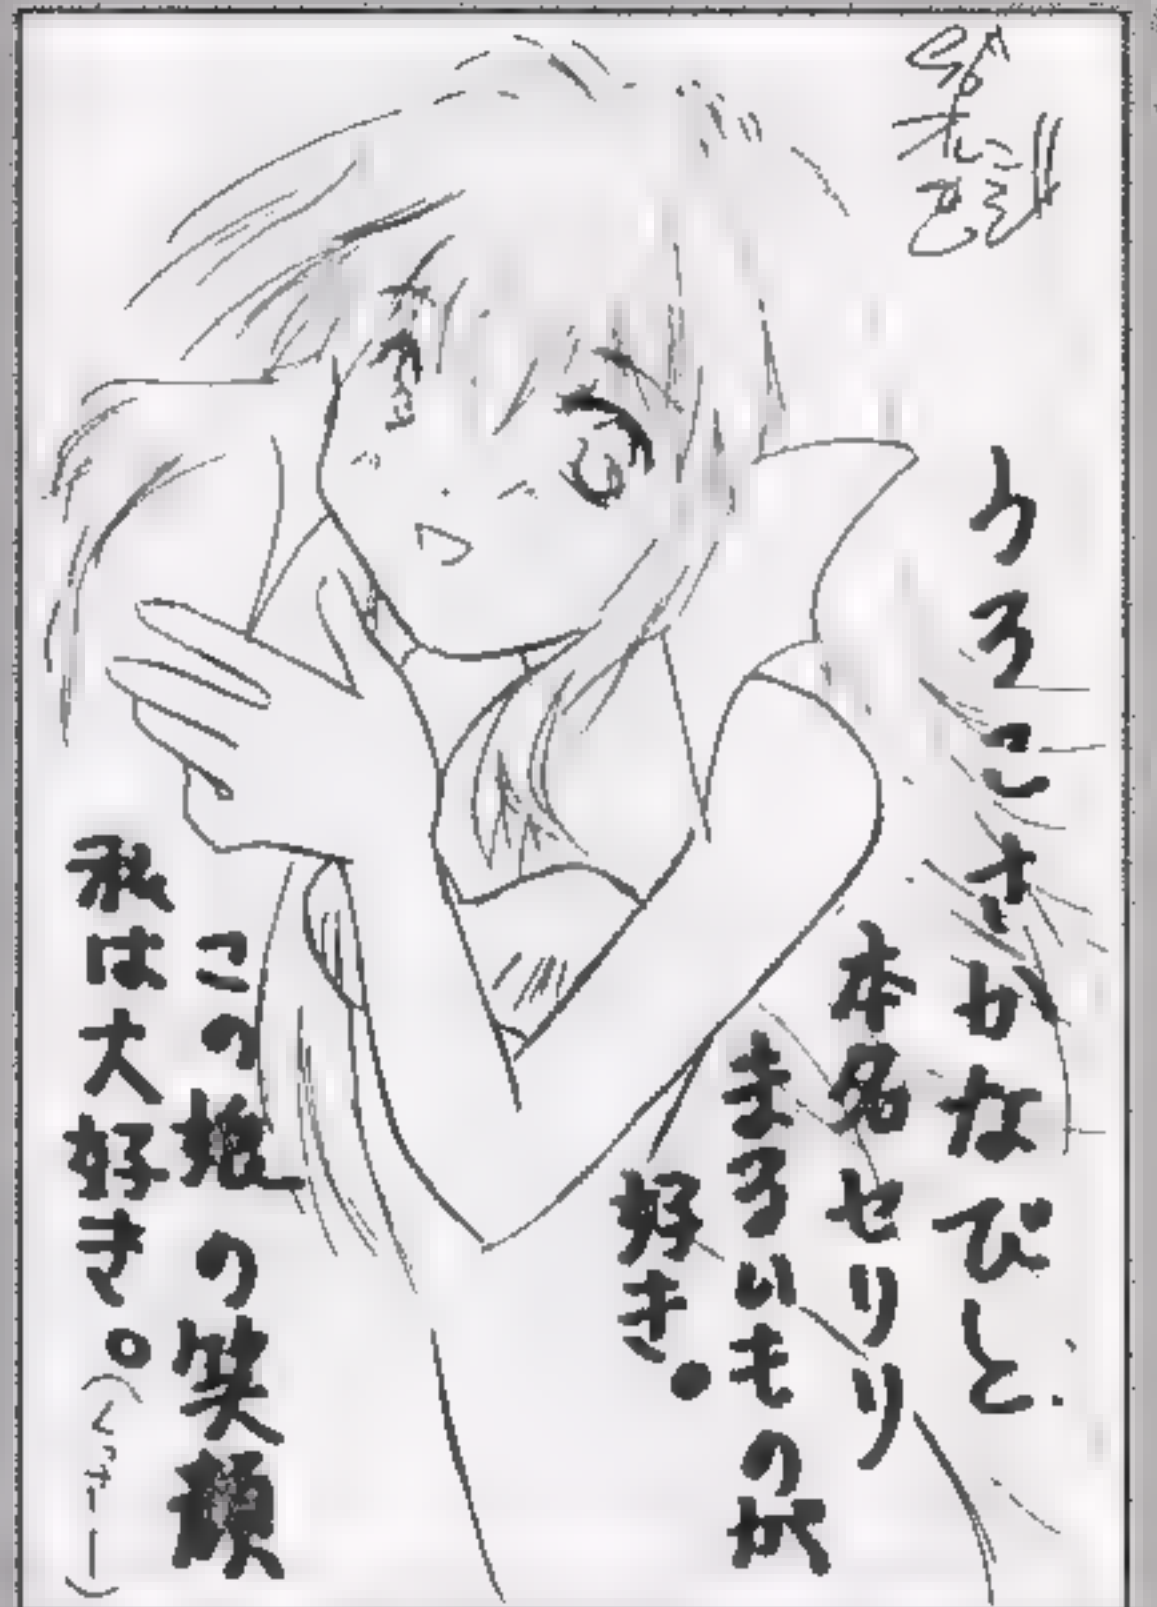 うろこさかなびと
本名セリリ
まるいものが
好き。
この娘の笑顔
私は大好き。(くっさー)